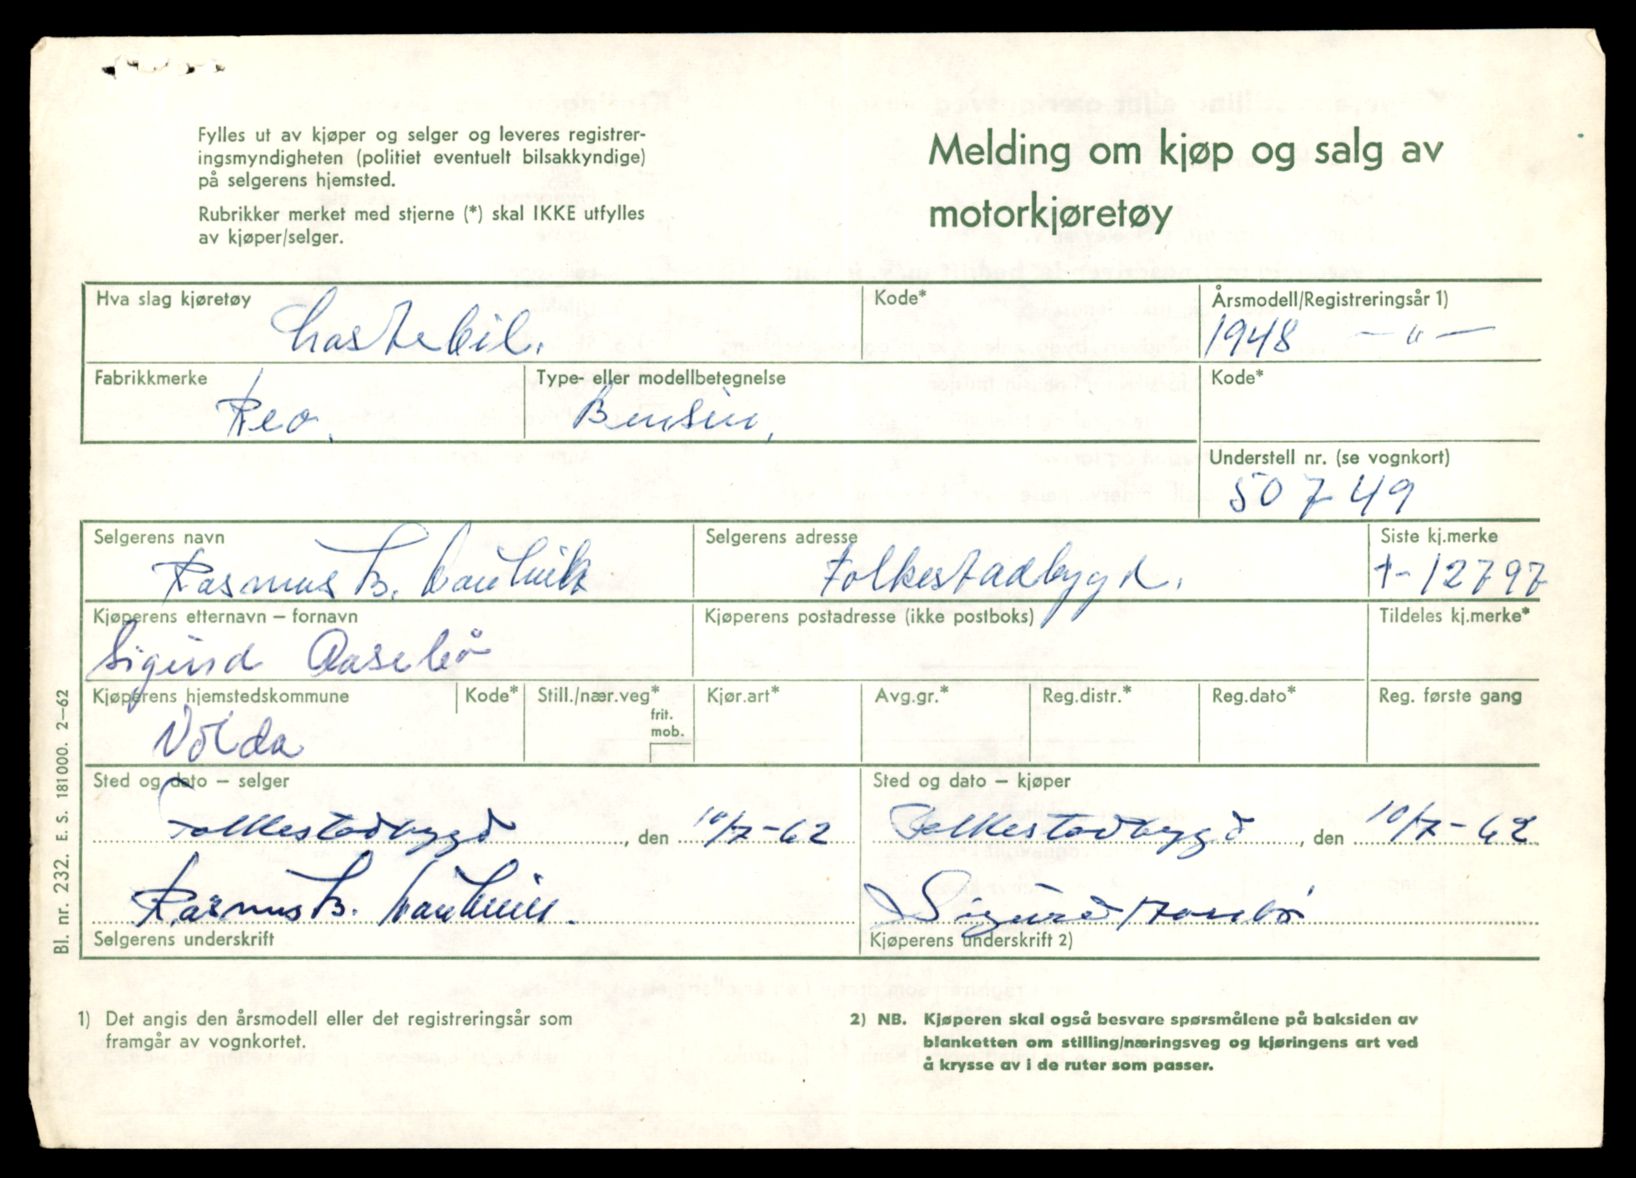 Fylles ut av kjøper og selger og leveres registrer-
ingsmyndigheten (politiet eventuelt bilsakkyndige)
på selgerens hjemsted.
Rubrikker merket med stjerne (*) skal IKKE utfylles
av kjøper/selger.
Melding om kjøp og salg av
motorkjøretøy
Hva slag kjøretøy
Lastebil.
Kode*
Årsmodell/Registreringsår 1)
1948 — „ —
Fabrikkmerke
Reo.
Type- eller modellbetegnelse
Bensin,
Kode*
Understell nr. (se vognkort)
50749
Selgerens navn
Rasmus B.
Selgerens adresse
Folkestadbygd.
Siste kj.merke
T-12797
Kjøperens etternavn – fornavn
Sigurd Aasebö
Kjøperens postadresse (ikke postboks)
Tildeles kj.merke*
Kjøperens hjemstedskommune
Volda
Kode*
Still./nær.veg*
frit.
mob.
Kjør.art*
Avg.gr.*
Reg.distr.*
Reg.dato*
Reg. første gang
Sted og dato – selger
Folkestadbygd, den 10/7-62
Sted og dato – kjøper
Folkestadbygd, den 10/7-62
Rasmus B.
Selgerens underskrift
Sigurd Aasebö
Kjøperens underskrift 2)
Bl. nr. 232. E. S. 181000. 2–62
1) Det angis den årsmodell eller det registreringsår som
framgår av vognkortet.
2) NB. Kjøperen skal også besvare spørsmålene på baksiden av
blanketten om stilling/næringsveg og kjøringens art ved
å krysse av i de ruter som passer.